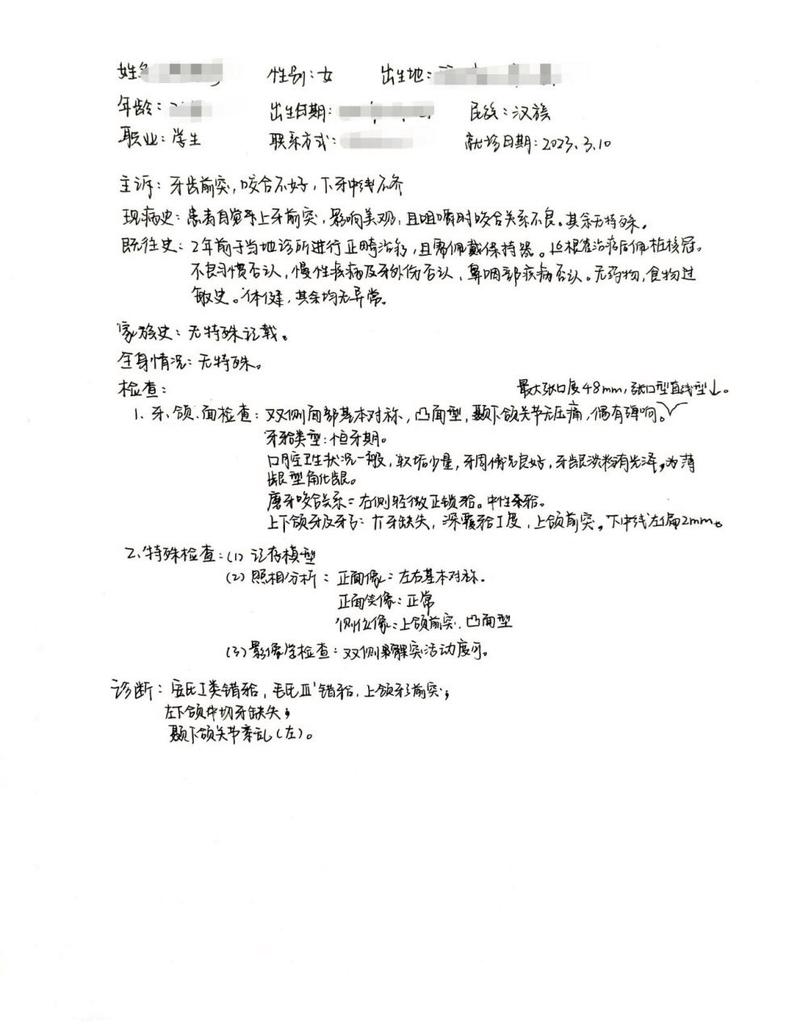 姓名 性别：女 出生地：
年龄： 出生日期： 民族：汉族
职业：学生 联系方式： 就诊日期：2023.3.10
主诉：牙齿前突，咬合不好，下牙中线不齐
现病史：患者自觉上牙前突，影响美观，且咀嚼时咬合关系不良。其余无特殊。
既往史：2年前于当地诊所进行正畸治疗，且需佩戴保持器。 根管治疗后佩桩核冠。
不良习惯否认，慢性疾病及牙外伤否认，鼻咽部疾病否认。无药物，食物过
敏史。体健，其余均无异常。
家族史：无特殊记载。
全身情况：无特殊。
检查： 最大张口度48mm，张口型直线型↓。
1. 牙、颌、面检查：双侧面部基本对称，凸面型，颞下颌关节无压痛，偶有弹响。
牙𬌗类型：恒牙期。
口腔卫生状况一般，软垢少量，牙周情况良好，牙龈淡粉有光泽，为薄
龈型角化龈。
磨牙咬合关系=右侧轻微正锁𬌗。中性𬌗。
上下颌牙及牙弓： 牙缺失，深覆𬌗I度，上颌前突。下中线左偏2mm。
2. 特殊检查：(1) 记存模型
(2) 照相分析：正面像：左右基本对称.
正面笑像：正常
侧位像：上颌前突.凸面型
(3) 影像学检查：双侧髁突活动度可。
诊断：安氏I类错𬌗，毛氏II¹错𬌗，上颌牙前突；
左下颌中切牙缺失；
颞下颌关节紊乱(左)。